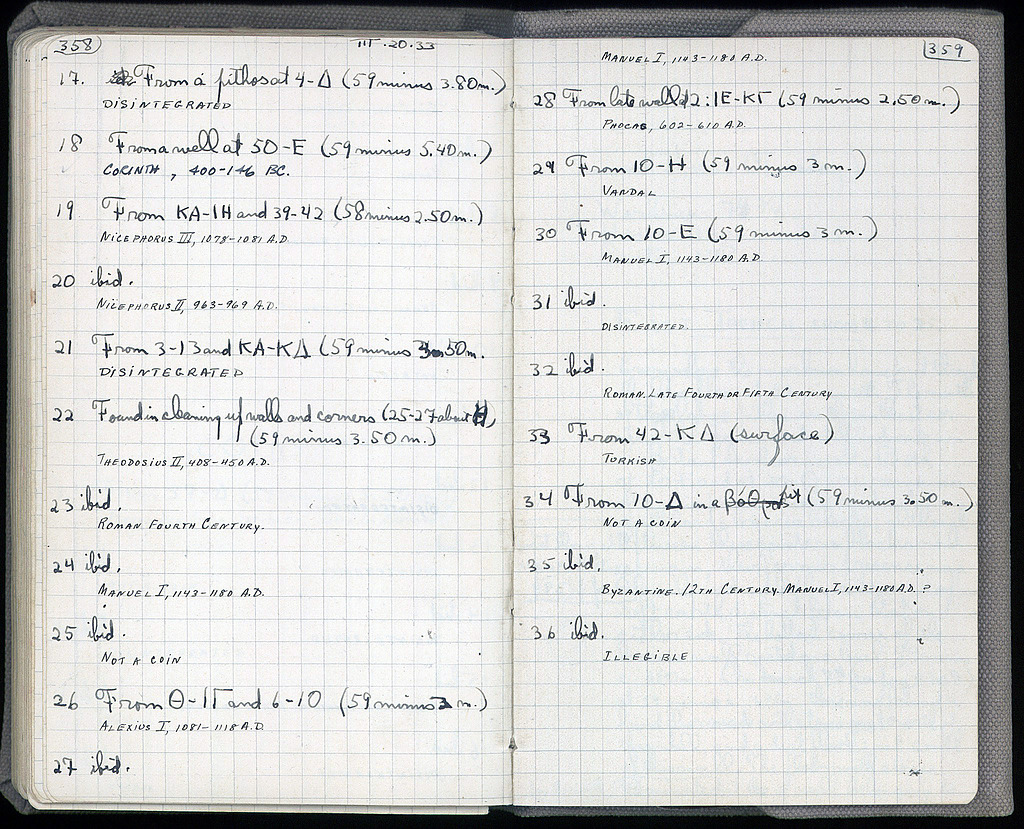 358
III.20.33
17. From a pithos at 4-Δ (59 minus 3.80m.)
DISINTEGRATED
18 From a well at 50-E (59 minus 5.40m.)
CORINTH, 400-146 BC.
19 From KA-IH and 39-42 (58 minus 2.50m.)
NICEPHORUS III, 1078-1081 A.D.
20 ibid.
NICEPHORUS II, 963-969 A.D.
21 From 3-13 and KA-KΔ (59 minus 3.50m.
DISINTEGRATED
22 Found in cleaning up walls and corners (25-27 about H,
(59 minus 3.50 m.)
THEODOSIUS II, 408-450 A.D.
23 ibid.
ROMAN FOURTH CENTURY.
24 ibid.
MANUEL I, 1143-1180 A.D.
25 ibid.
NOT A COIN
26 From Θ-IΓ and 6-10 (59 minus 3 m.)
ALEXIUS I, 1081-1118 A.D.
27 ibid.
359
MANUEL I, 1143-1180 A.D.
28 From late wall 12:IE-KΓ (59 minus 2.50m.)
PHOCAS, 602-610 A.D.
29 From 10-H (59 minus 3m.)
VANDAL
30 From 10-E (59 minus 3m.)
MANUEL I, 1143-1180 A.D.
31 ibid.
DISINTEGRATED.
32 ibid.
ROMAN. LATE FOURTH OR FIFTH CENTURY
33 From 42-KΔ (surface)
TURKISH
34 From 10-Δ in a βόθρος pit (59 minus 3.50 m.)
NOT A COIN
35 ibid.
BYZANTINE. 12TH CENTURY. MANUEL I, 1143-1180 A.D. ?
36 ibid.
ILLEGIBLE